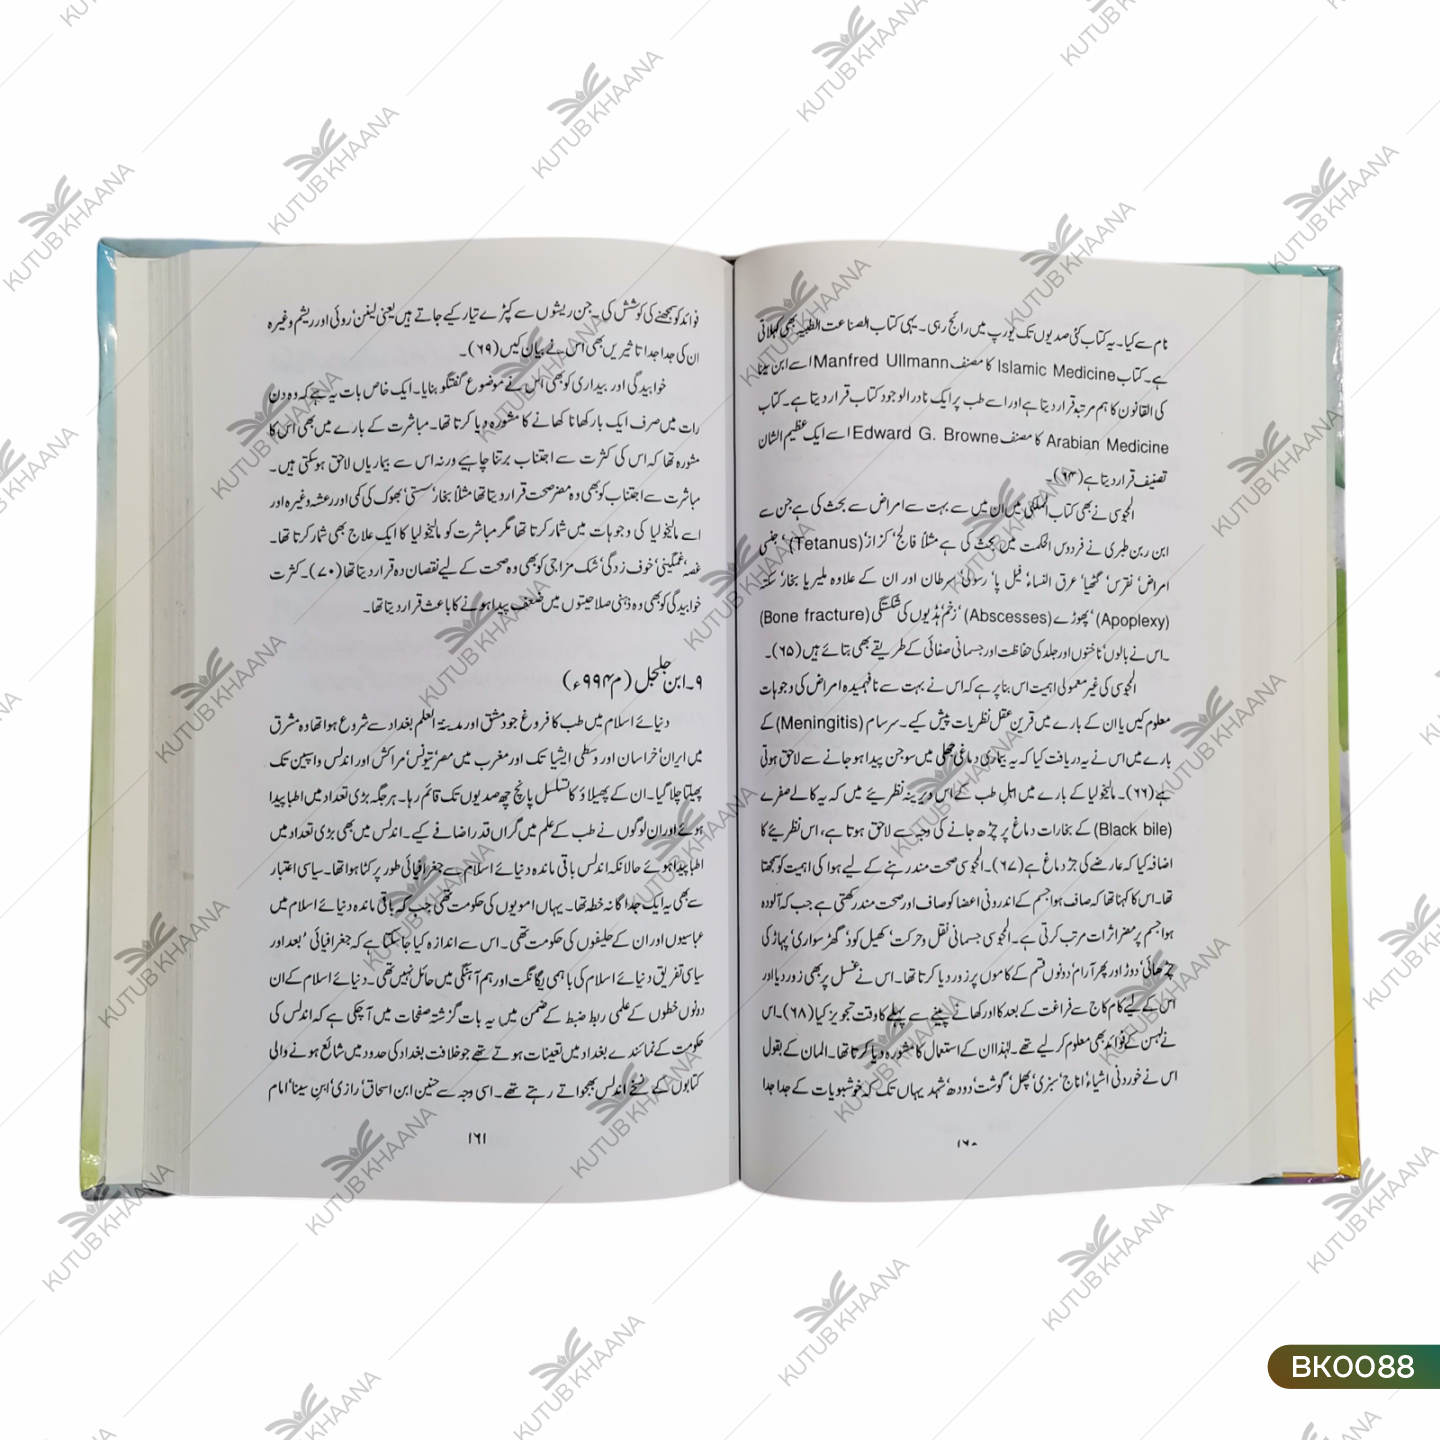 نام سے کیا۔ یہ کتاب کئی صدیوں تک یورپ میں رائج رہی۔ یہی کتاب الصناعت الطبیہ بھی کہلاتی
ہے۔ کتاب Islamic Medicine کا مصنف Manfred Ullmann اسے ابن سینا
کی القانون کا ہم مرتبہ قرار دیتا ہے اور اسے طب پر ایک نادر الوجود کتاب قرار دیتا ہے۔ کتاب
Arabian Medicine کا مصنف Edward G. Browne اسے ایک عظیم الشان
تصنیف قرار دیتا ہے (۶۴)۔
المجوسی نے بھی کتاب الملکی میں ان میں سے بہت سے امراض سے بحث کی ہے جن سے
ابن ربن طبری نے فردوس الحکمت میں بحث کی ہے مثلاً فالج‘ کزاز (Tetanus)‘ جنسی
امراض‘ نقرس‘ گٹھیا‘ عرق النساء‘ فیل پا‘ رسولی‘ سرطان اور ان کے علاوہ ملیریا بخار‘ سکتہ
(Apoplexy)‘ پھوڑے (Abscesses)‘ زخم‘ ہڈیوں کی شکستگی (Bone fracture)
۔اس نے بالوں‘ ناخنوں اور جلد کی حفاظت اور جسمانی صفائی کے طریقے بھی بتائے ہیں (۶۵)۔
المجوسی کی غیر معمولی اہمیت اس بنا پر ہے کہ اس نے بہت سے نافہمیدہ امراض کی وجوہات
معلوم کیں یا ان کے بارے میں قرین عقل نظریات پیش کیے۔ سرسام (Meningitis) کے
بارے میں اس نے یہ دریافت کیا کہ یہ بیماری دماغی جھلی میں سوجن پیدا ہو جانے سے لاحق ہوتی
ہے (۶۶)۔ مالیخولیا کے بارے میں اہل طب کے اس دیرینہ نظریئے میں کہ یہ کالے صفرے
(Black bile) کے بخارات دماغ پر چڑھ جانے کی وجہ سے لاحق ہوتا ہے، اس نظریئے کا
اضافہ کیا کہ عارضے کی جڑ دماغ ہے (۶۷)۔ المجوسی صحت مند رہنے کے لیے ہوا کی اہمیت کو سمجھتا
تھا۔ اس کا کہنا تھا کہ صاف ہوا جسم کے اندرونی اعضا کو صاف اور صحت مند رکھتی ہے جب کہ آلودہ
ہوا جسم پر مضر اثرات مرتب کرتی ہے۔ المجوسی جسمانی نقل و حرکت‘ کھیل کود‘ گھڑ سواری‘ پہاڑ کی
چڑھائی‘ دوڑ اور پھر آرام‘ دونوں قسم کے کاموں پر زور دیا کرتا تھا۔ اس نے غسل پر بھی زور دیا اور
اس کے لیے کام کاج سے فراغت کے بعد کا اور کھانے پینے سے پہلے کا وقت تجویز کیا (۶۸)۔ اس
نے لہسن کے فوائد بھی معلوم کر لیے تھے۔ لہٰذا ان کے استعمال کا مشورہ دیا کرتا تھا۔ المان کے بقول
اس نے خوردنی اشیاء‘ اناج‘ سبزی‘ پھل‘ گوشت‘ دودھ‘ شہد یہاں تک کہ خوشبویات کے جدا جدا
۱۶۰
فوائد کو سمجھنے کی کوشش کی۔ جن ریشوں سے کپڑے تیار کیے جاتے ہیں یعنی لینن‘ روئی اور ریشم وغیرہ
ان کی جدا جدا تاثیریں بھی اس نے بیان کیں (۶۹)۔
خوابیدگی اور بیداری کو بھی اس نے موضوع گفتگو بنایا۔ ایک خاص بات یہ ہے کہ وہ دن
رات میں صرف ایک بار کھانا کھانے کا مشورہ دیا کرتا تھا۔ مباشرت کے بارے میں بھی اس کا
مشورہ تھا کہ اس کی کثرت سے اجتناب برتنا چاہیے ورنہ اس سے بیماریاں لاحق ہو سکتی ہیں۔
مباشرت سے اجتناب کو بھی وہ مضر صحت قرار دیتا تھا مثلاً بخار‘ سستی‘ بھوک کی کمی اور رعشہ وغیرہ اور
اسے مالیخولیا کی وجوہات میں شمار کرتا تھا مگر مباشرت کو مالیخولیا کا ایک علاج بھی شمار کرتا تھا۔
غصہ‘ غمگینی‘ خوف زدگی‘ شک مزاجی کو بھی وہ صحت کے لیے نقصان دہ قرار دیتا تھا (۷۰)۔ کثرت
خوابیدگی کو بھی وہ ذہنی صلاحیتوں میں ضعف پیدا ہونے کا باعث قرار دیتا تھا۔
۹۔ ابن جلجل (م ۹۹۴ء)
دنیائے اسلام میں طب کا فروغ جو دمشق اور مدینۃ العلم بغداد سے شروع ہوا تھا وہ مشرق
میں ایران‘ خراسان اور وسطی ایشیا تک اور مغرب میں مصر‘ تیونس‘ مراکش اور اندلس و اسپین تک
پھیلتا چلا گیا۔ ان کے پھیلاؤ کا تسلسل پانچ چھ صدیوں تک قائم رہا۔ ہر جگہ بڑی تعداد میں اطبا پیدا
ہوئے اور ان لوگوں نے طب کے علم میں گراں قدر اضافے کیے۔ اندلس میں بھی بڑی تعداد میں
اطبا پیدا ہوئے حالانکہ اندلس باقی ماندہ دنیائے اسلام سے جغرافیائی طور پر کٹا ہوا تھا۔ سیاسی اعتبار
سے بھی یہ ایک جداگانہ خطہ تھا۔ یہاں امویوں کی حکومت تھی جب کہ باقی ماندہ دنیائے اسلام میں
عباسیوں اور ان کے حلیفوں کی حکومت تھی۔ اس سے اندازہ کیا جا سکتا ہے کہ جغرافیائی بُعد اور
سیاسی تفریق دنیائے اسلام کی باہمی یگانگت اور ہم آہنگی میں حائل نہیں تھی۔ دنیائے اسلام کے ان
دونوں خطوں کے علمی ربط ضبط کے ضمن میں یہ بات گزشتہ صفحات میں آ چکی ہے کہ اندلس کی
حکومت کے نمائندے بغداد میں تعینات ہوتے تھے جو خلافت بغداد کی حدود میں شائع ہونے والی
کتابوں کے نسخے اندلس بھجواتے رہتے تھے۔ اسی وجہ سے حنین ابن اسحاق‘ رازی‘ ابن سینا‘ امام
۱۶۱
KUTUB KHAANA
BK0088